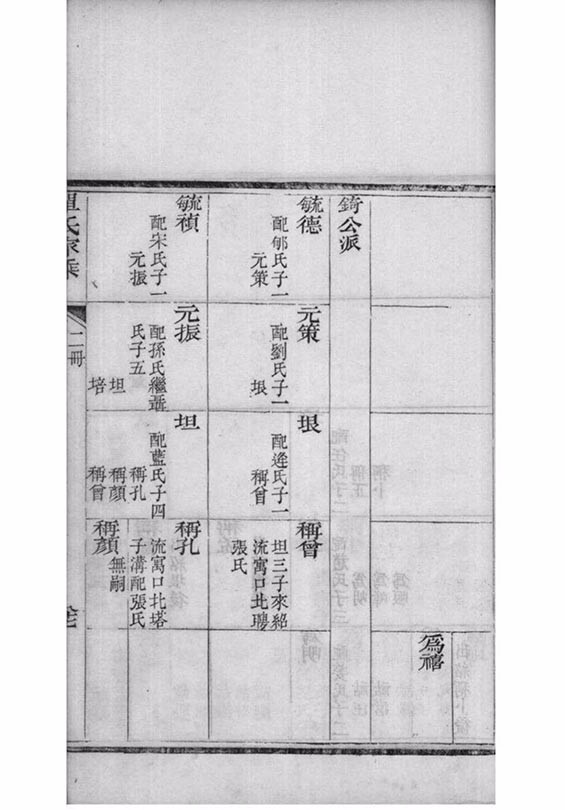 為禧
錡公派
毓德
配郇氏子一
元策
元策
配劉氏子一
垠
垠
配逄氏子一
稱曾
稱曾
坦三子來紹
流寓口北
張氏
毓禎
配宋氏子一
元振
元振
配孫氏繼聶
氏子五
坦
培
坦
配藍氏子四
稱孔
稱顏
稱曾
稱孔
流寓口北塔
子溝配張氏
無嗣
稱顏
氏家乘
二冊